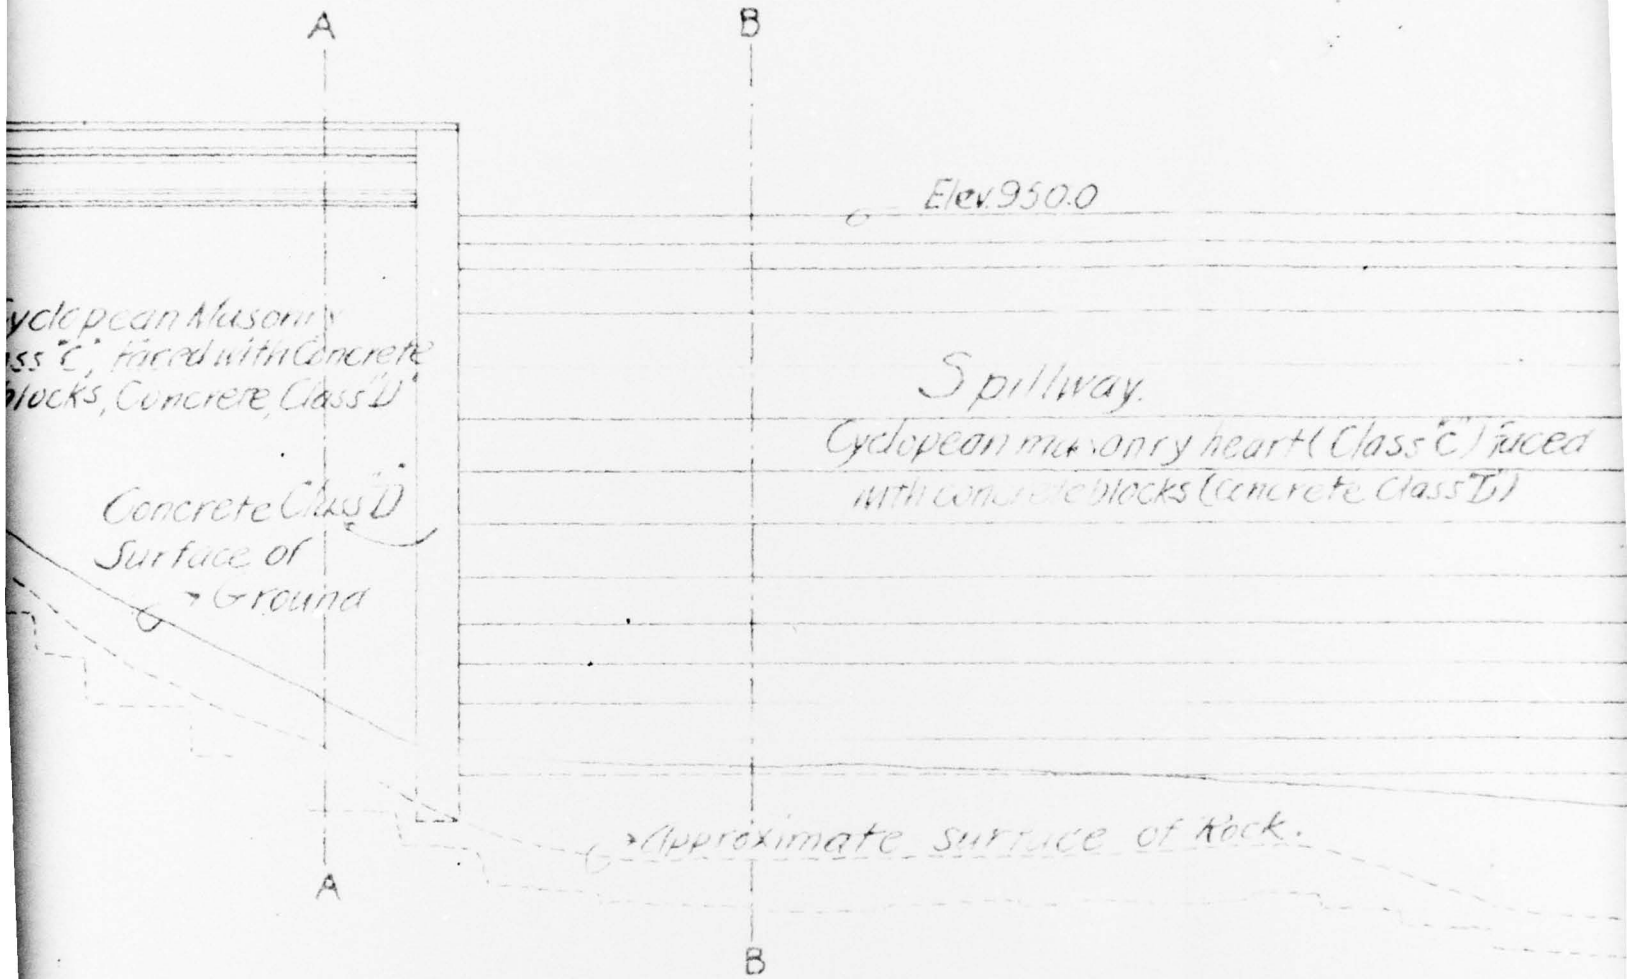 A
B
Elev. 950.0
yclopean Masonry
ass "C", faced with Concrete
blocks, Concrete, Class "D"
Spillway.
Cyclopean masonry heart (Class "C") faced
with concrete blocks (Concrete Class "D")
Concrete Class "D"
Surface of
Ground
Approximate surface of Rock.
A
B